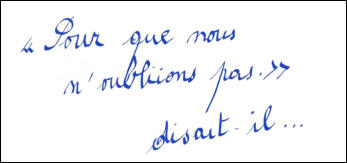 « Pour que nous
n'oubliions pas.»
disait-il...